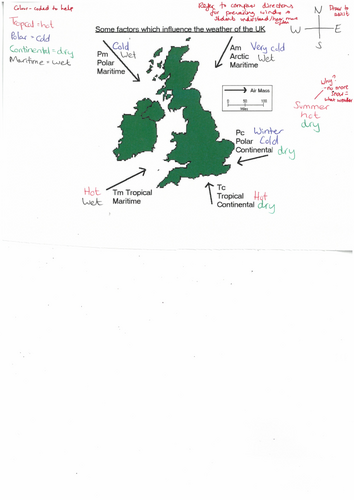 Colour-coded to help
Tropical = hot
Polar = cold
Continental = dry
Maritime = wet
Refer to compass directions
for prevailing winds so
students understand/hear more
often
Draw to
assist
N
W E
S
Some factors which influence the weather of the UK
Cold
Pm Wet
Polar
Maritime
Am Very cold
Arctic Wet
Maritime
Air Mass
0 50 100
Why?
- no more
Summer
hot
dry
Pc Winter
Polar Cold
Continental dry
Hot
Wet
Tm Tropical
Maritime
Tc
Tropical Hot
Continental dry